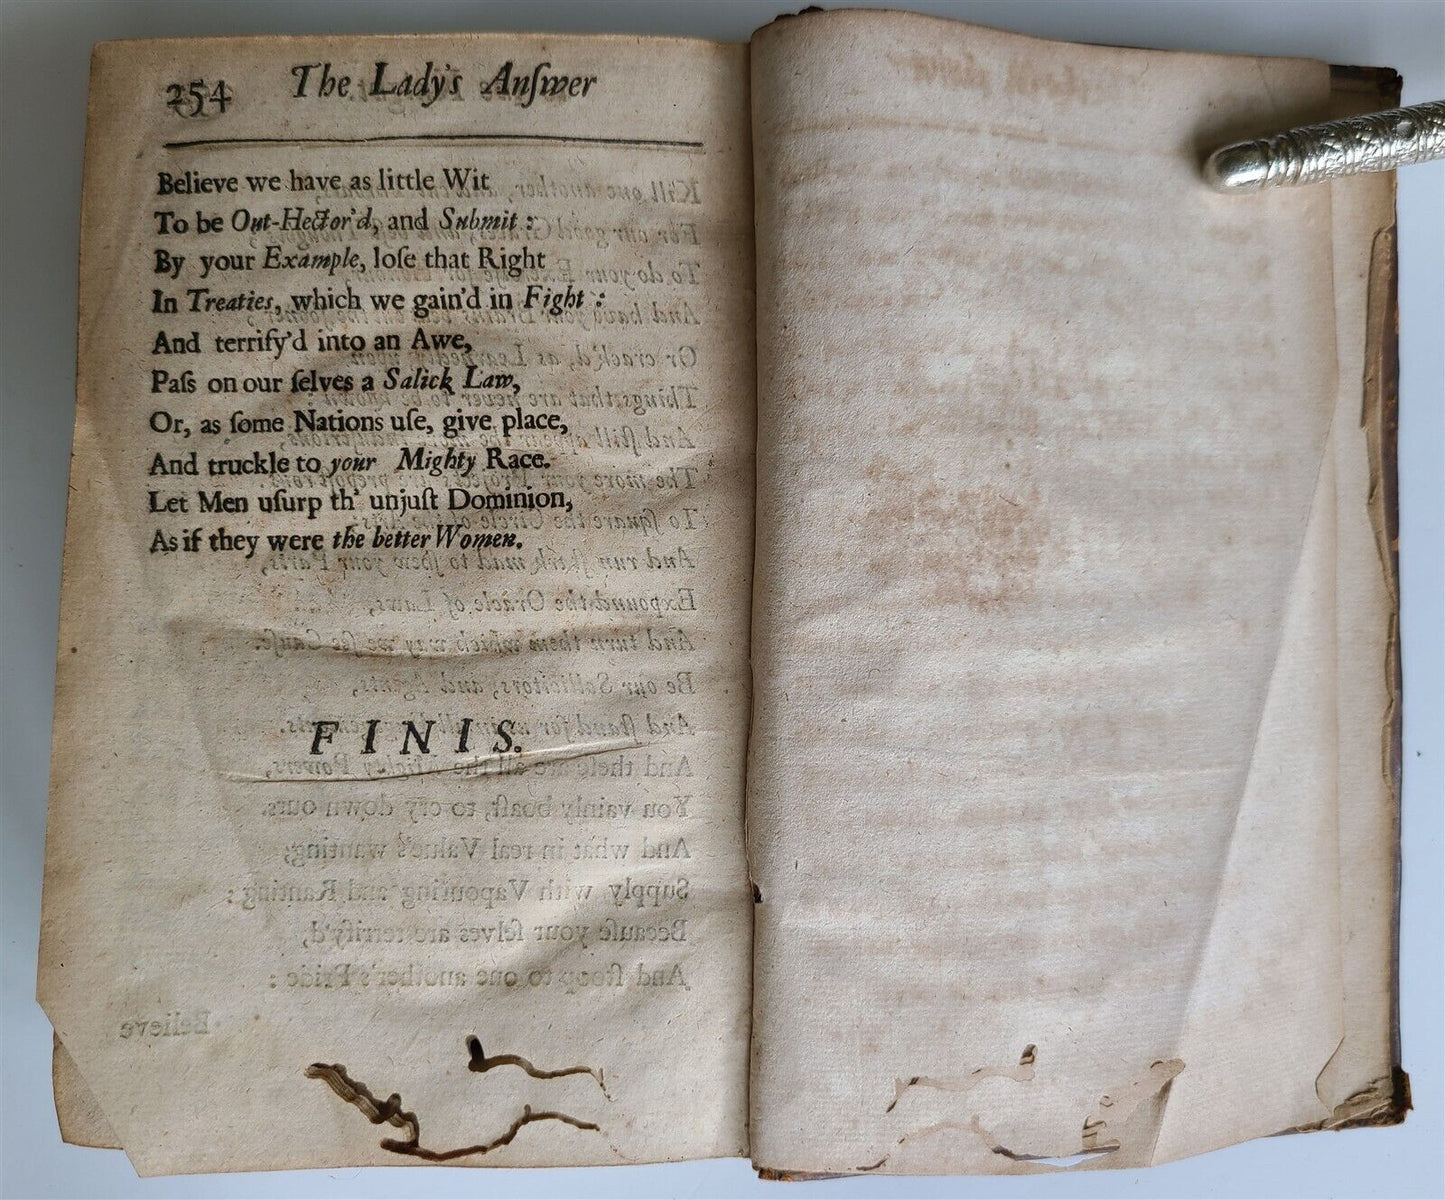 254 The Lady's Anſwer
Believe we have as little Wit
To be Out-Hector'd, and Submit:
By your Example, loſe that Right
In Treaties, which we gain'd in Fight:
And terrify'd into an Awe,
Paſs on our ſelves a Salick Law,
Or, as ſome Nations uſe, give place,
And truckle to your Mighty Race.
Let Men uſurp th' unjuſt Dominion,
As if they were the better Women.
FINIS.